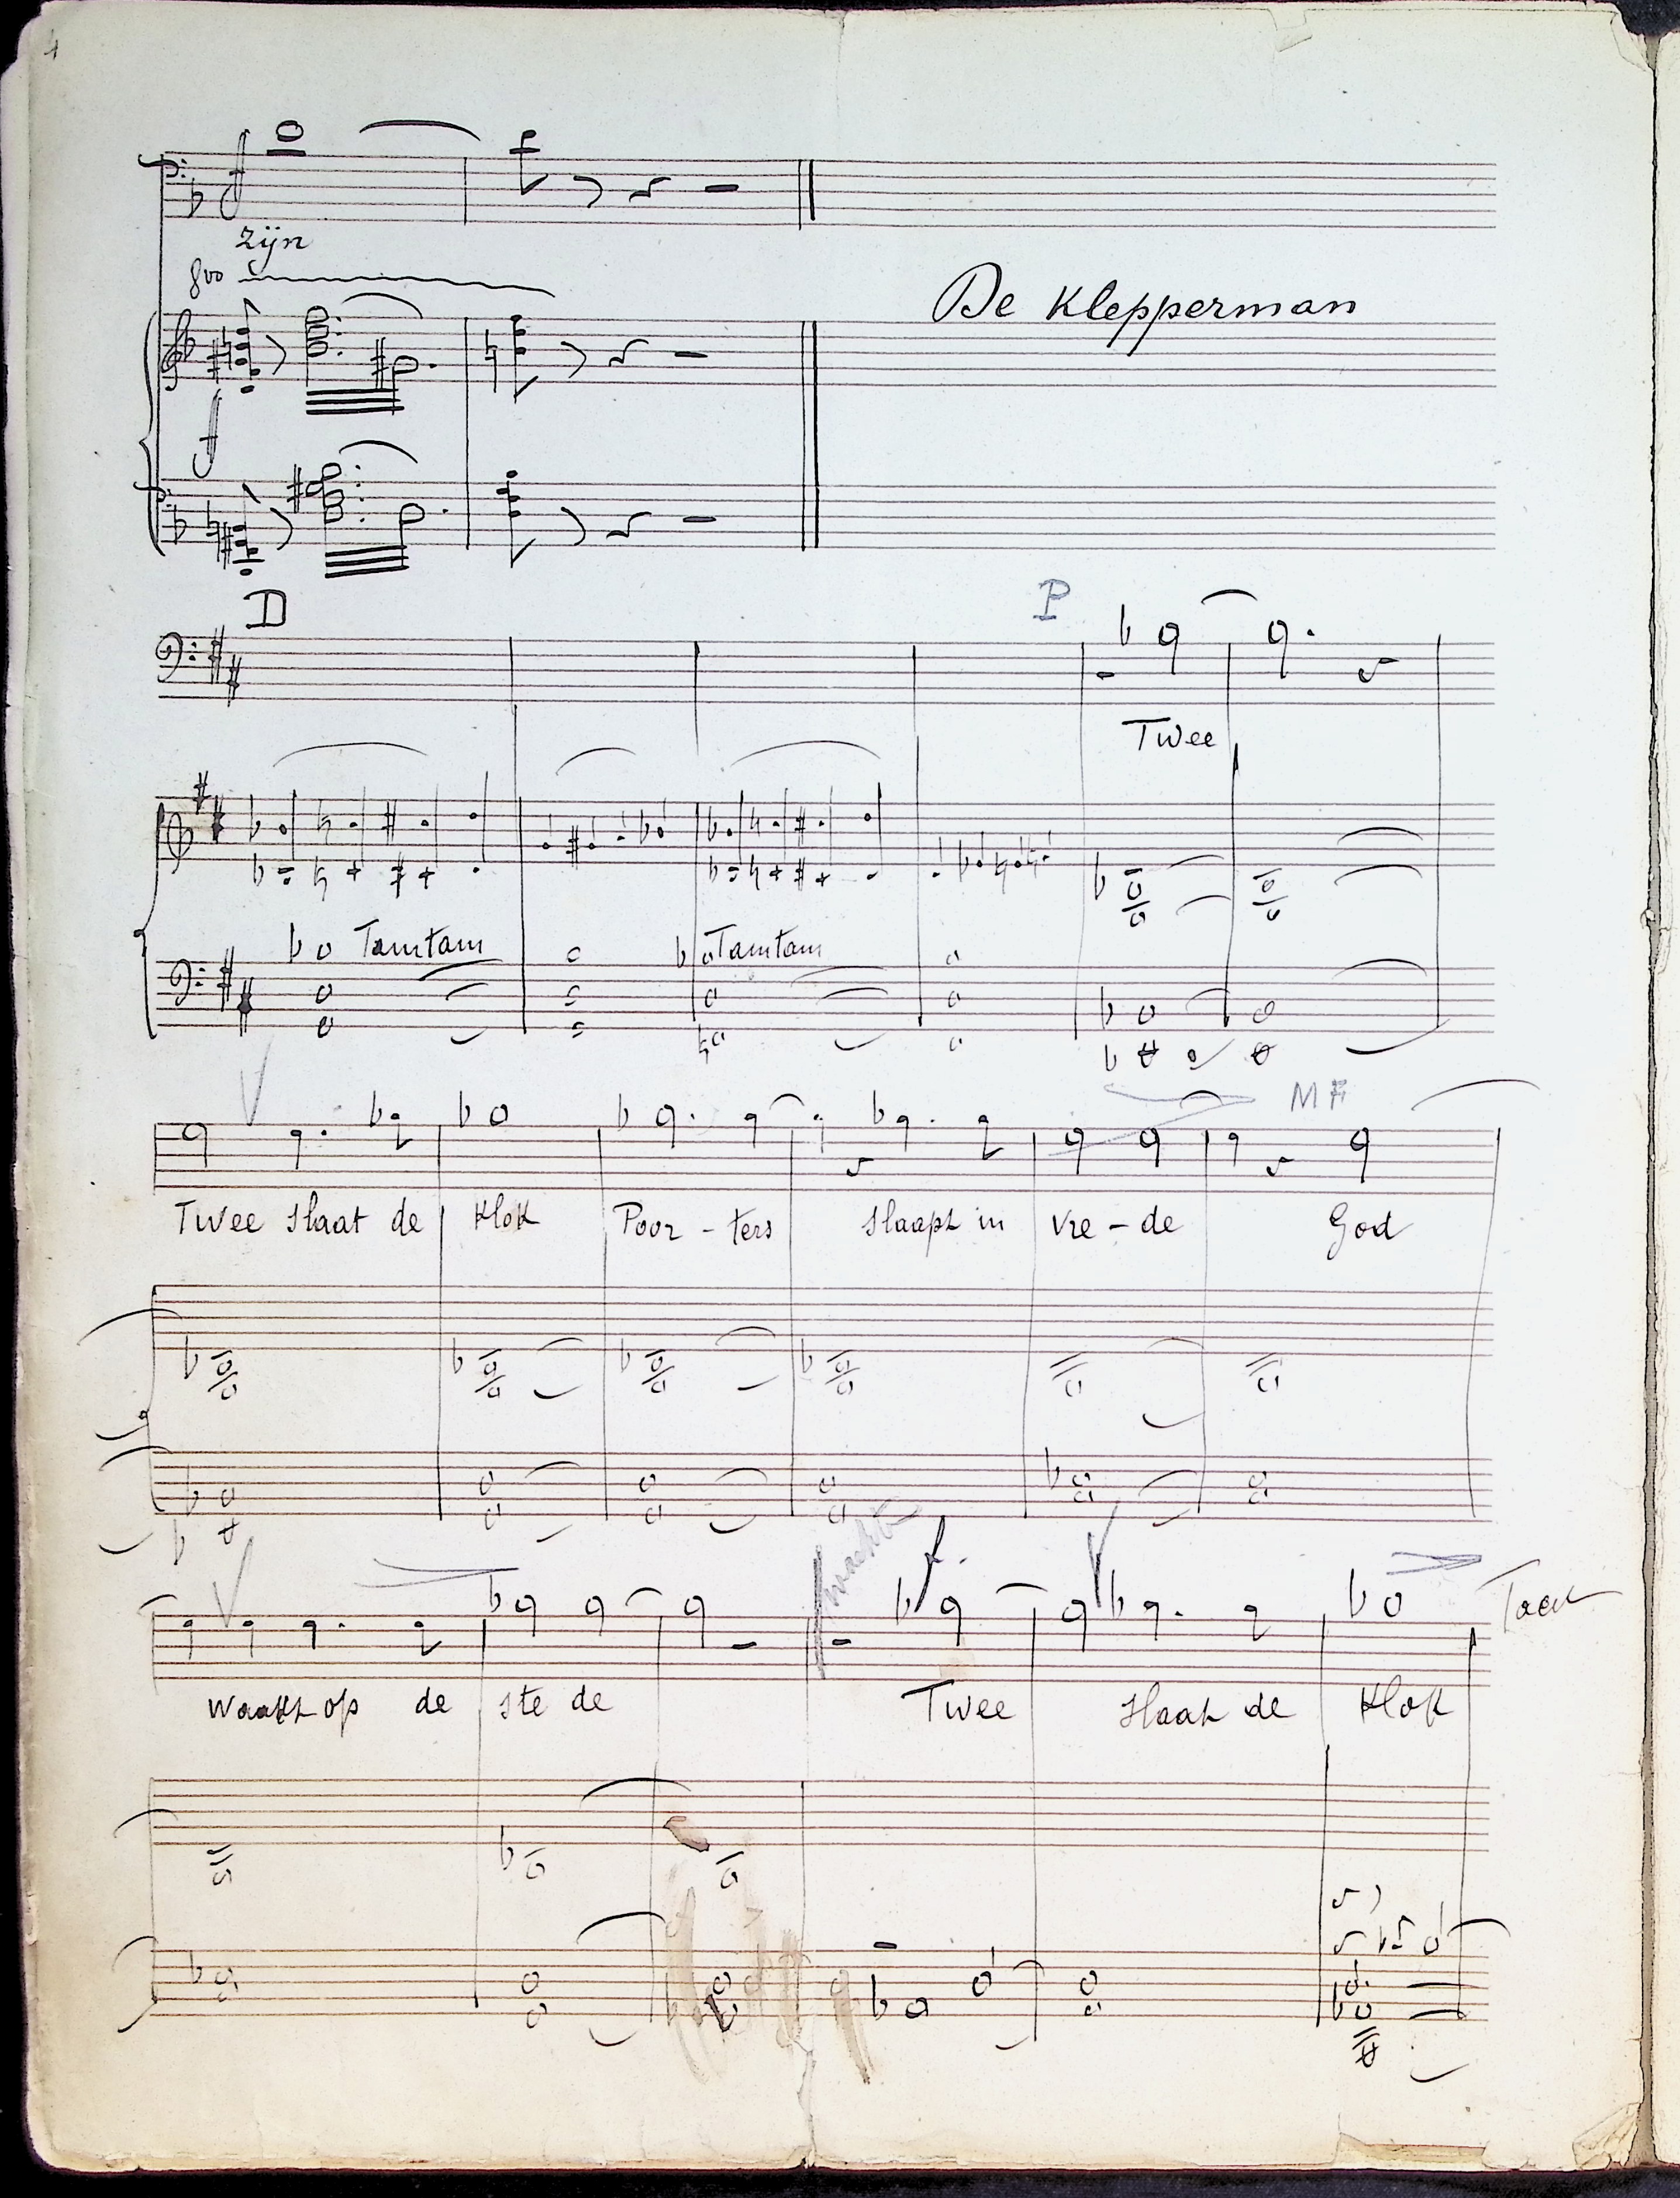 4
zijn
8vo
De Klepperman
D
P
Twee
Tamtam Tamtam
MF
Twee slaat de Klok Poor - ters slaapt in vre - de God
f.
waakt op de ste de Twee slaat de Klok